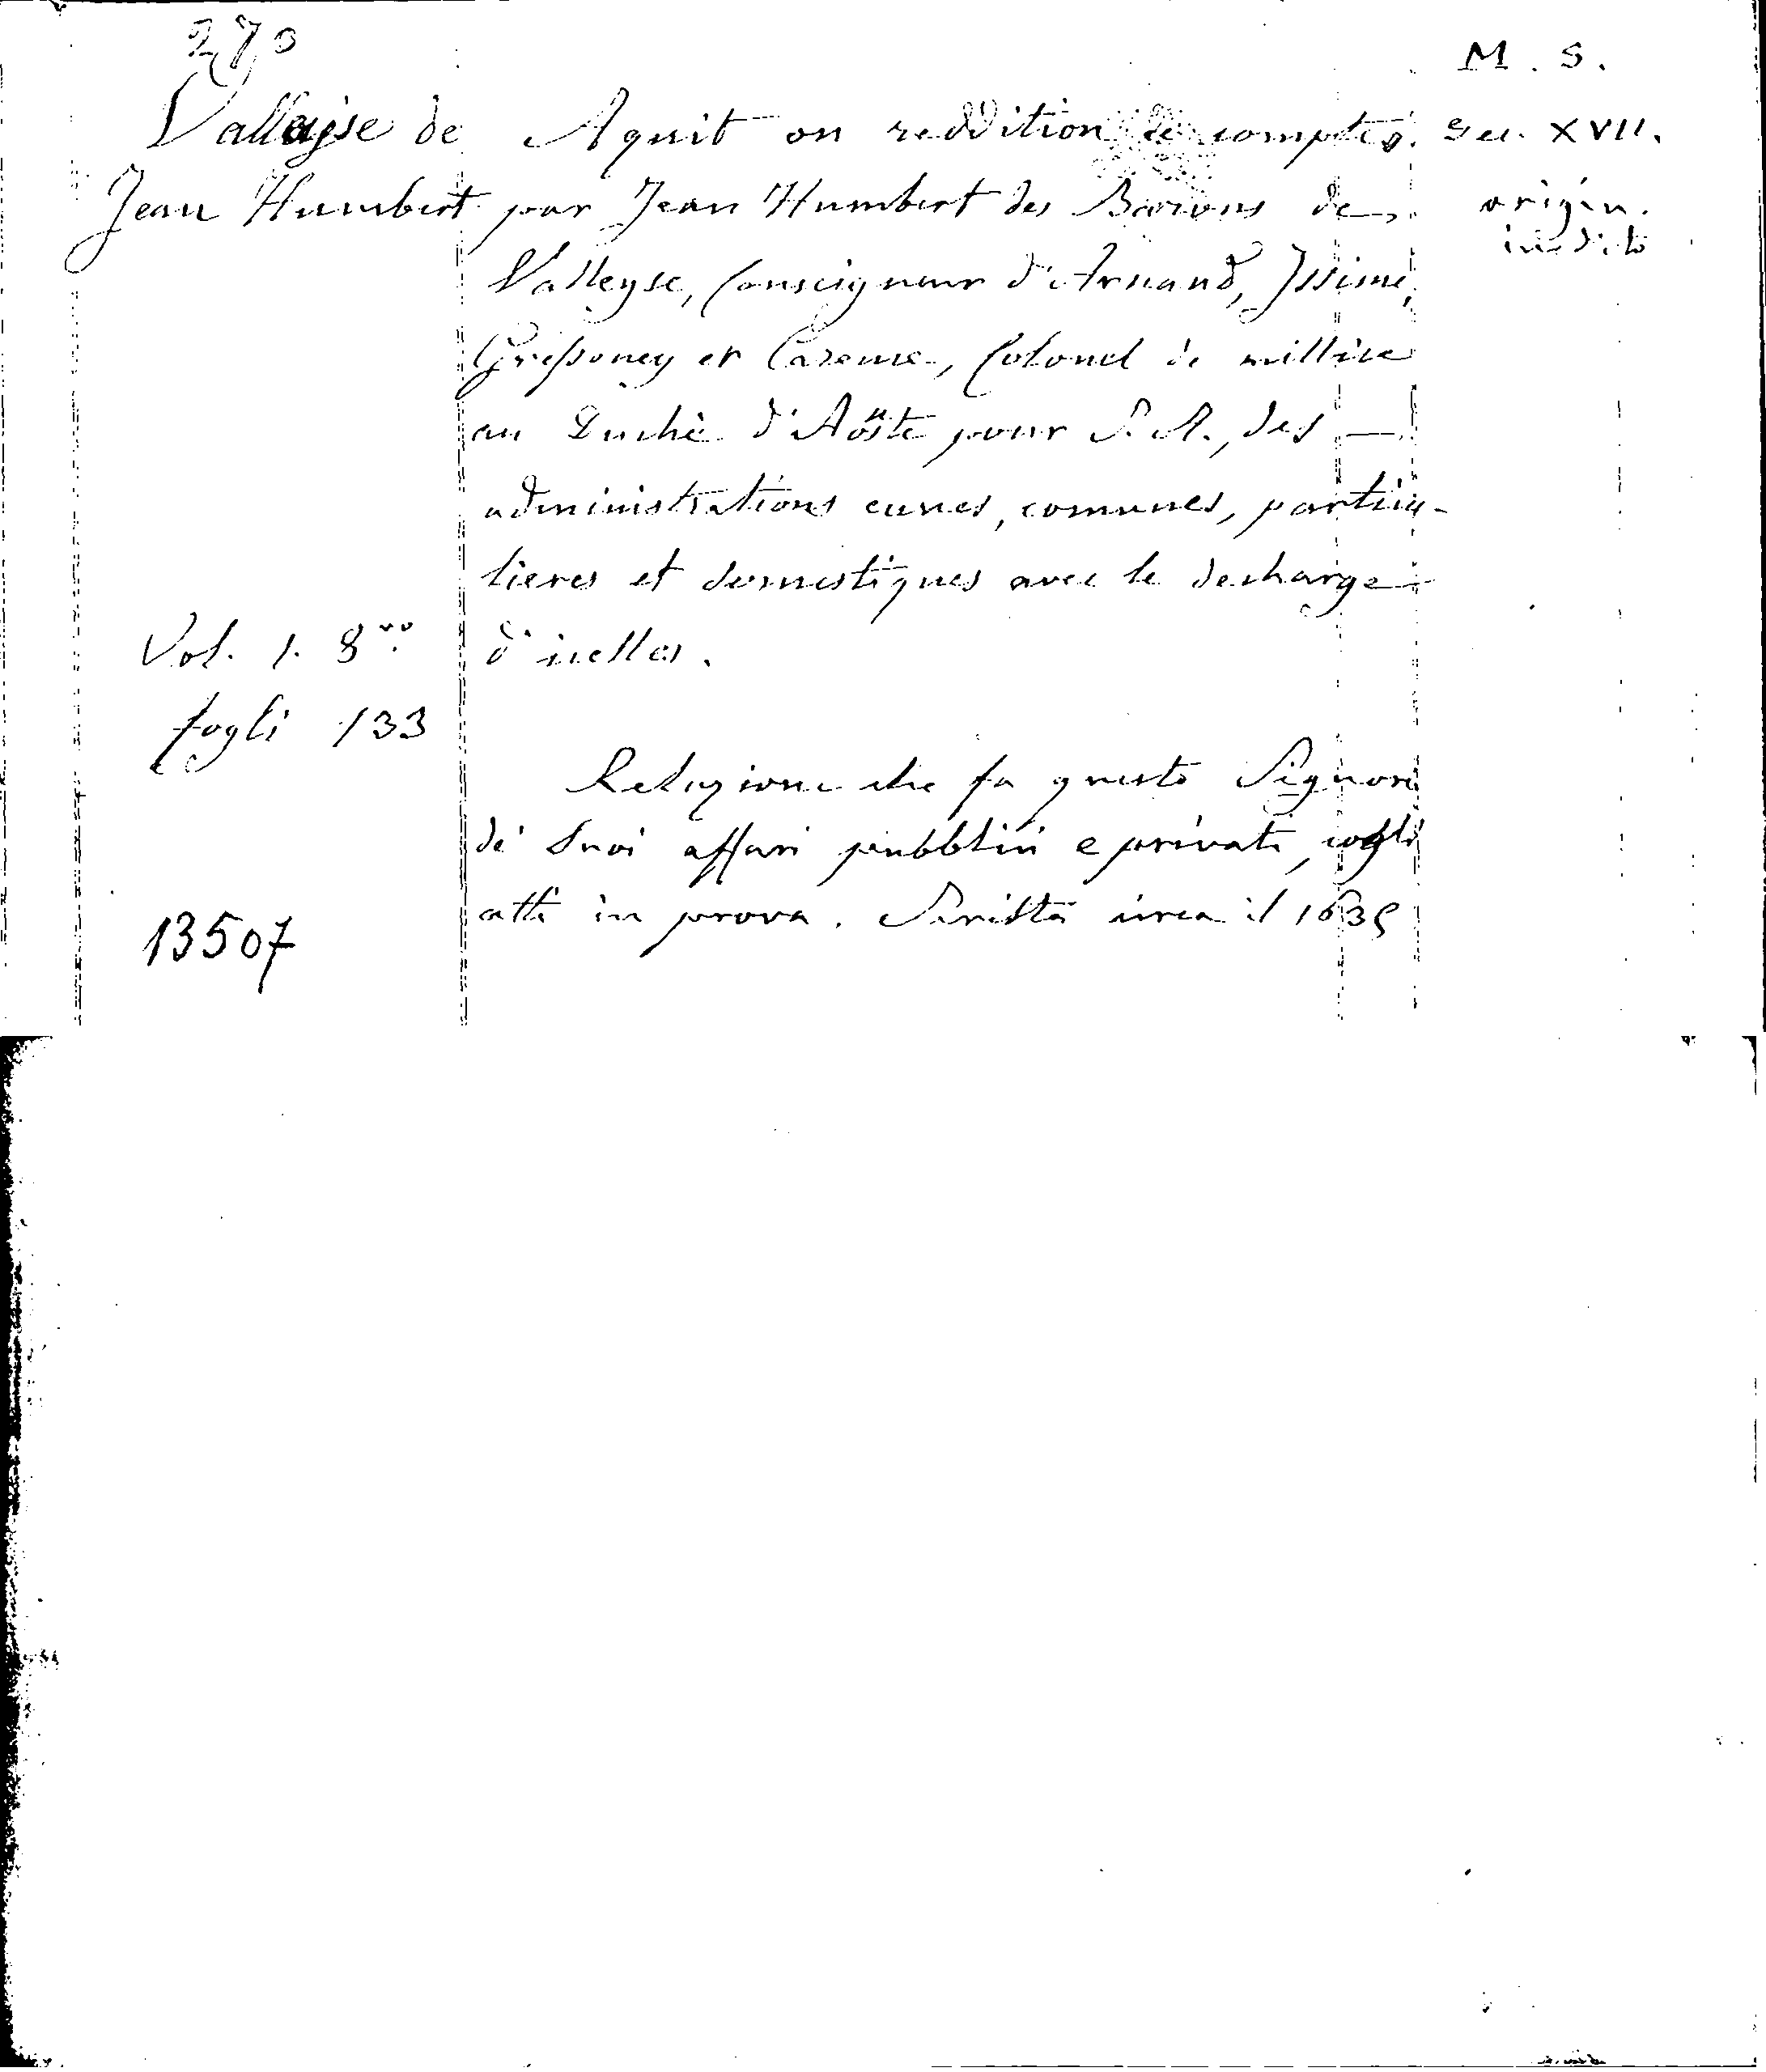 270
M. S.
Valleyse de
Jean Humbert
Aquit ou reddition de comptes
par Jean Humbert des Barons de
Valleyse, Conseigneur d'Arnand, Issime,
Gressoney et Careme, Colonel de millice
au Duché d'Aoste pour S. A., des
administrations eunes, comunes, particu-
lieres et domestiques avec le decharge
d'icelles.
Sec. XVII.
origin.
inedito
Vol. 1. 8vo.
fogli 133
Relazione che fa questo Signore
de' suoi affari pubblici e privati, cogli
atti in prova. Scritta circa il 1635
13507